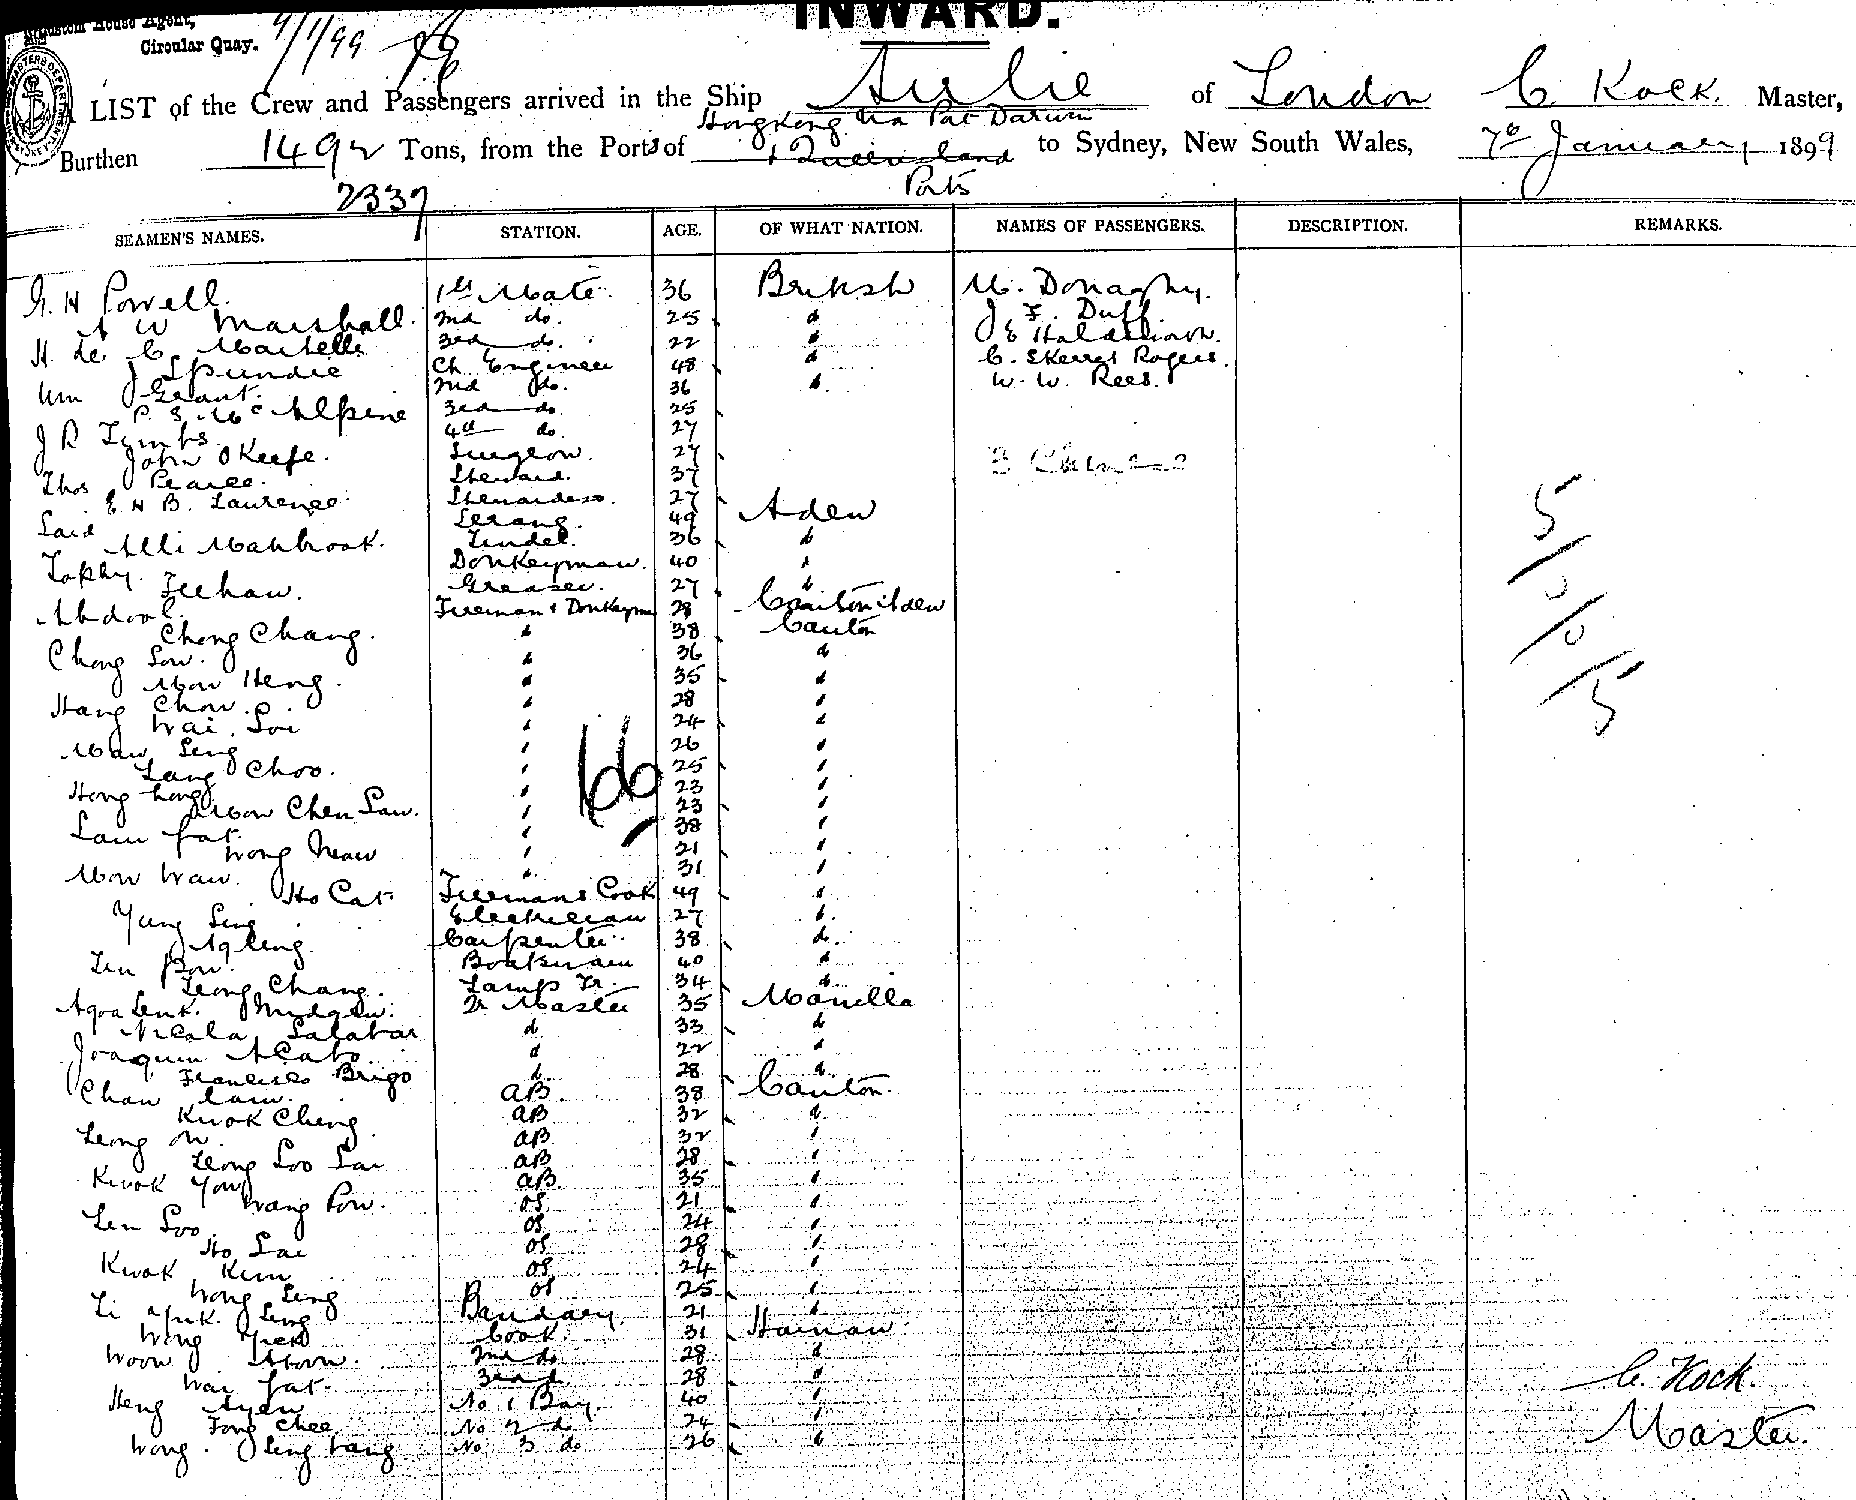 INWARD.
Custom House Agent,
Circular Quay.
9/1/99
LIST of the Crew and Passengers arrived in the Ship Airlie of London C. Kock. Master,
Burthen 1492 Tons, from the Ports of Hongkong via Pt Darwin & Queensland Ports to Sydney, New South Wales, 7th January 1899
2337
SEAMEN'S NAMES. STATION. AGE. OF WHAT NATION. NAMES OF PASSENGERS. DESCRIPTION. REMARKS.
G. H Powell. 1st Mate 36 British M. Donaghy.
A W Marshall. 2nd do. 25 " J. F. Duff
H. de C. Martelli 3rd do. 22 " E
J Spundie Ch. Engineer 48 " C. Skerret Rogers.
Wm Grant. 2nd do. 36 " W. W. Rees.
P. S. McAlpine 3rd do. 25
J R Tymbs 4th do. 27
John OKeefe. Surgeon. 27 3 Chinese
Thos Pearce. Steward. 37
E H B. Laurence Stewardess. 27
Said Serang. 49 Aden
Alli Mahbrook. Tindel. 36 "
Donkeyman. 40 "
Feehan. Greaser. 27 "
Abdool. Fireman & Donkeyman 28 Aden
Chong Chang. " 38 Canton
Chong Sow. " 36 "
Mow Heng. " 35 "
Hang Chow. " 28 "
Wai Soi " 24 "
Maw Seng " 26 "
Lang Choo. " 25 "
Hong " 23 "
Mow Chen Law. " 23 "
Lam fat " 38 "
Wong " 21 "
Mow Waw. " 31 "
Ho Cat Firemans Cook 49 "
Yung Sing Electrician 27 "
Aqleng Carpenter 38 do.
Pow. Boatswain 40 "
Leong Chang. Lamp Tr. 34 "
Qr Master 35 Manilla
Nicola Salabar " 33 "
Joaquin " 22 "
Francisco Brigo " 28 "
Chan Lam. AB 38 Canton.
Kwok Cheng AB 32 "
Leong On AB 32 "
Leong Soo Lai AB 28 "
Kwok Yow AB 35 "
Wang Pow. OS 21 "
Len Soo OS 24 "
Ho Lai OS 28 "
Kwok Kim OS 24 "
Wong Seng OS 25 "
Li Seng Bandary. 21 "
Wong Cook. 31 Hainan
Woon Ahoon. 2nd do 28 "
Wai fat. 3rd " 28 "
Heng No 1 Boy. 40 "
Fong Chee No 2 do 24 "
Wong Seng No 3 do 26 "
66
5/0/0/5
C. Kock.
Master.